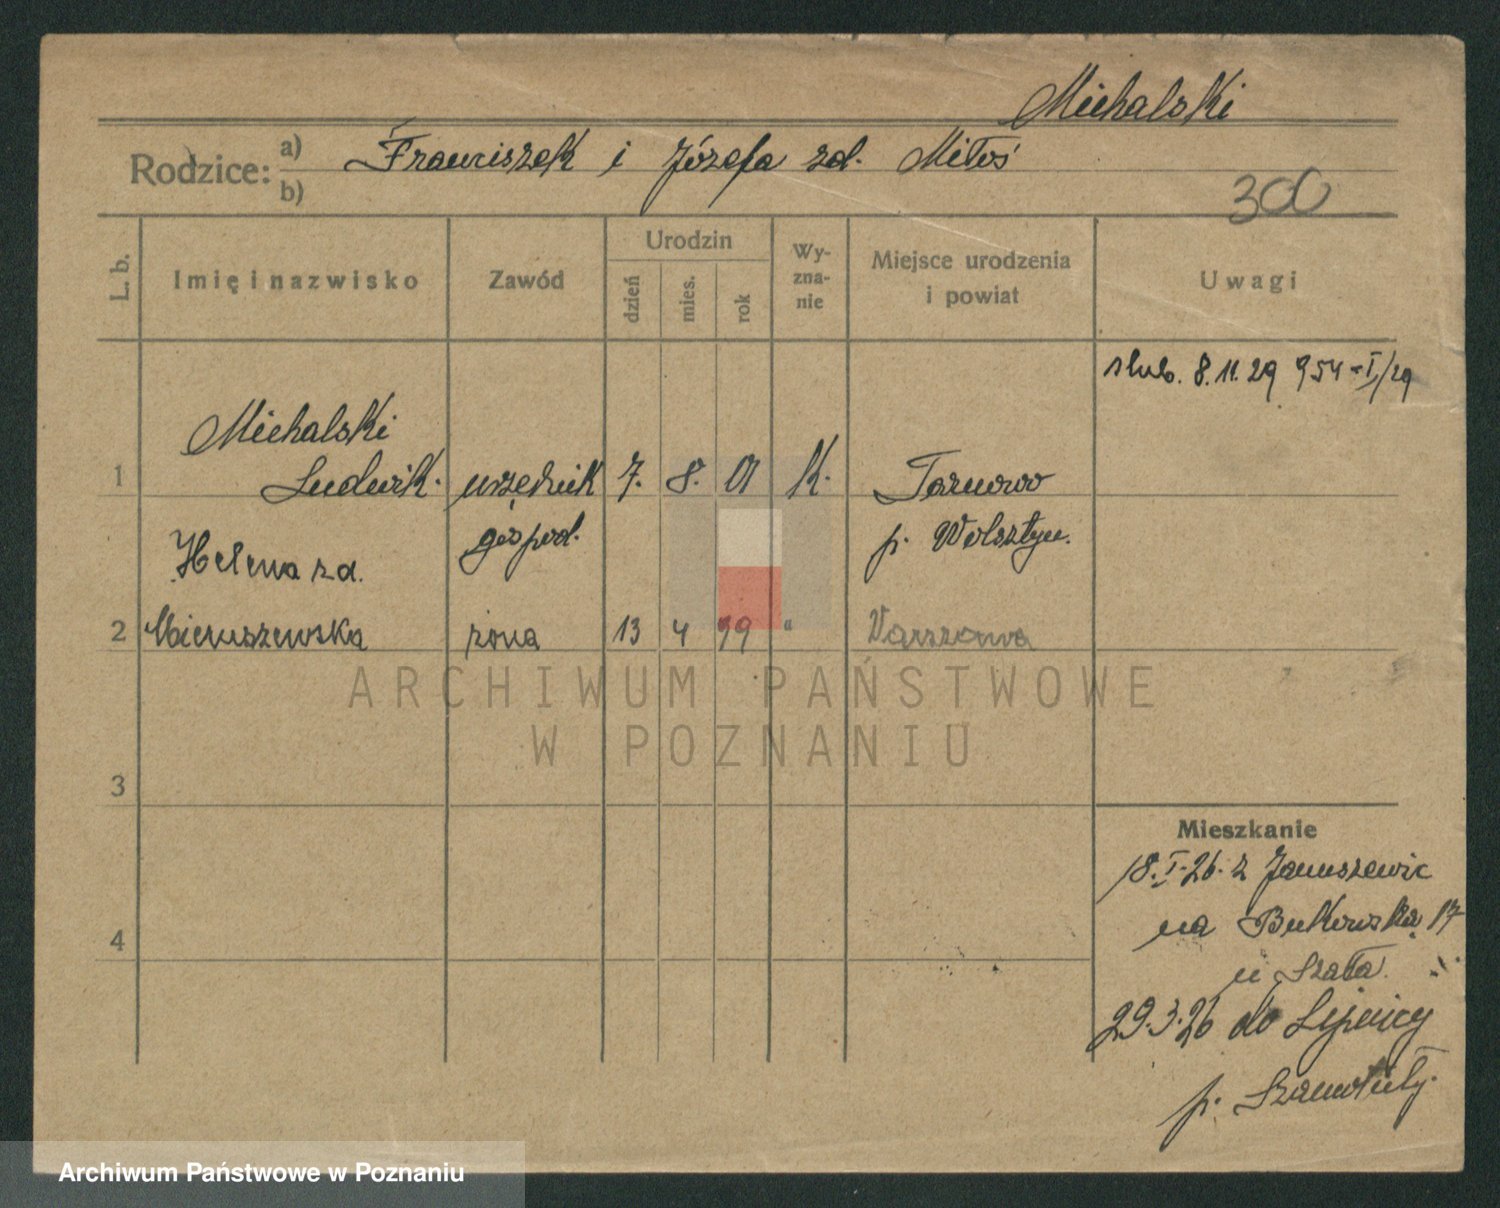 Michalski
Rodzice: a) Franciszek i Józefa zd. Miłoś
b)
300
L. b.
Imię i nazwisko
Zawód
Urodzin
dzień
mies.
rok
Wy-
zna-
nie
Miejsce urodzenia
i powiat
Uwagi
ślub. 8.11.29 954-I/29
Michalski
1 Ludwik. urzędnik 7. 8. 01 K. Tarnowo
gospod. p. Wolsztyn.
Helena zd.
2 żona 13 4 99 " Warszawa
ARCHIWUM PAŃSTWOWE
W POZNANIU
3
4
Mieszkanie
18.I.26. z Januszewic
na Bukowska 17
u Szała.
29.3.26 do Lipnicy
p. Szamotuły.
Archiwum Państwowe w Poznaniu